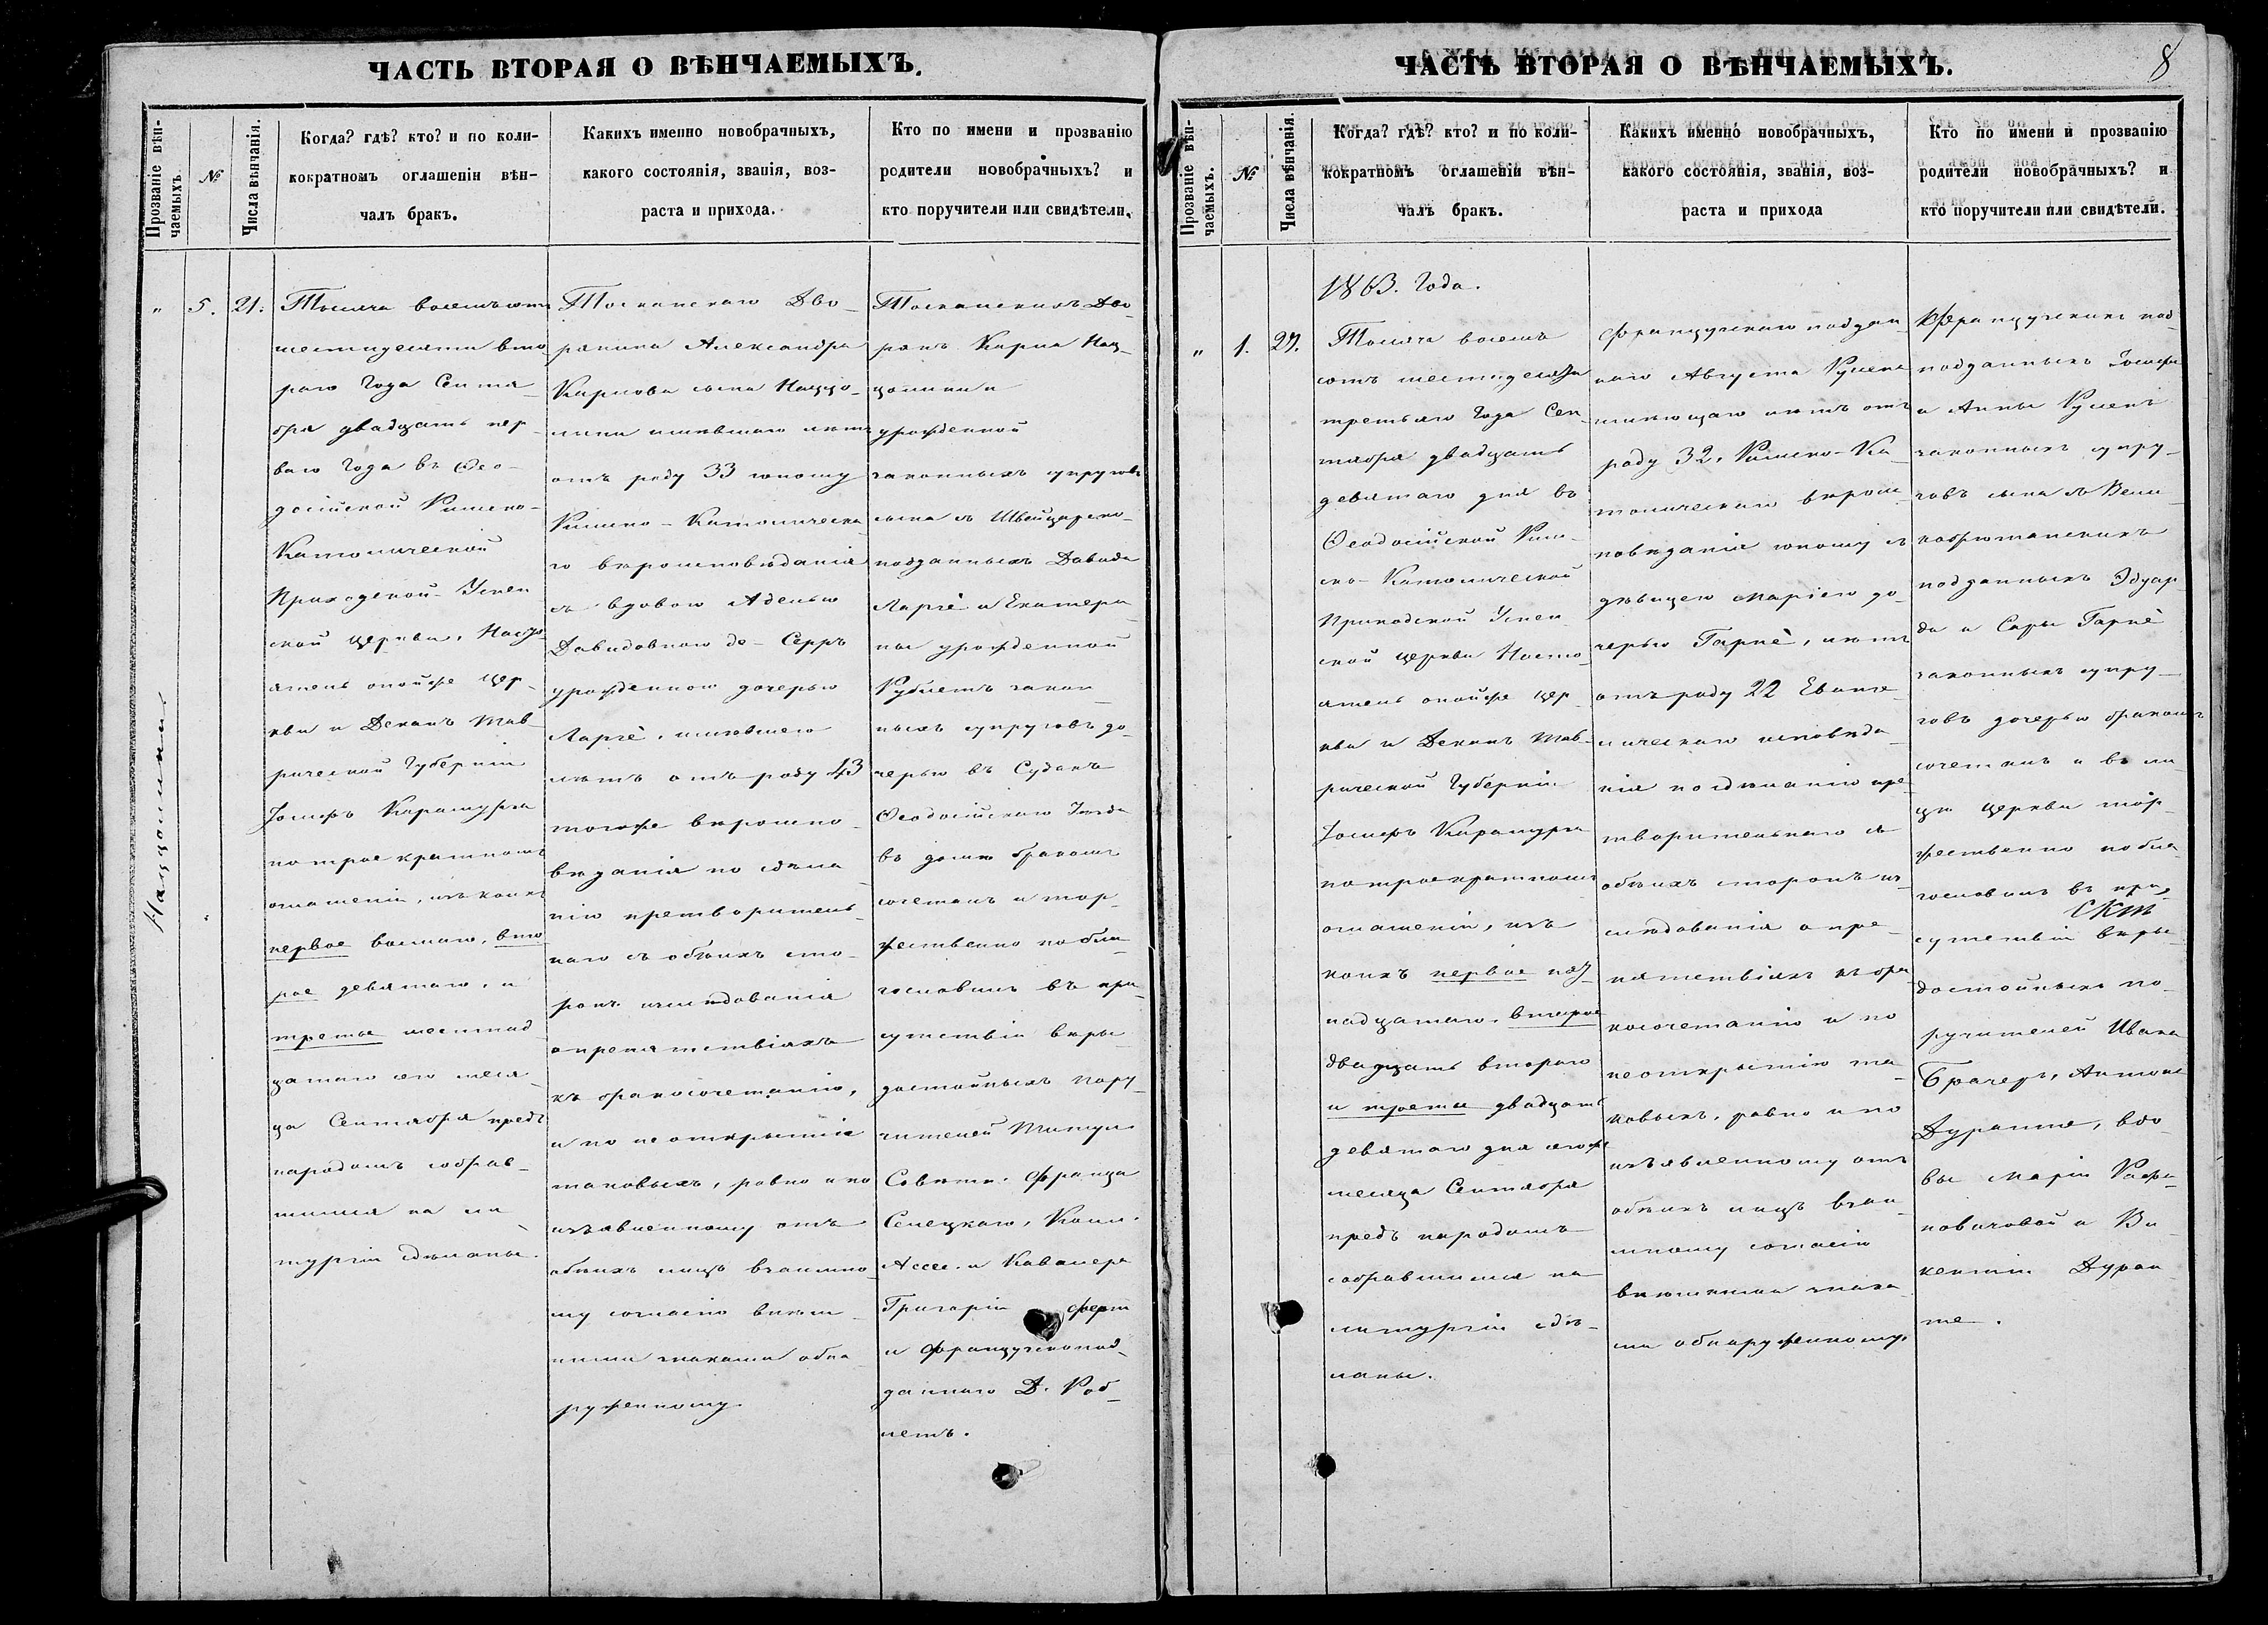 ЧАСТЬ ВТОРАЯ О ВѢНЧАЕМЫХЪ.
Прозваніе вѣн-
чаемыхъ.
№
Числа вѣнчанія.
Когда? гдѣ? кто? и по коли-
кократномъ оглашеніи вѣн-
чалъ бракъ.
Какихъ именно новобрачныхъ,
какого состоянія, званія, воз-
раста и прихода.
Кто по имени и прозванію
родители новобрачныхъ? и
кто поручители или свидѣтели.
"
5.
21.
Тысяча восемьсотъ
шестидесяти вто-
раго Года Сентя-
бря двадцать пер-
ваго Года въ Ѳео-
досійской Римско-
Католической
Приходской Успен
ской церкви, Насто-
ятель оной же цер-
кви и Деканъ Тав-
рической Губерніи
Іосифъ Карамурза
по трое кратномъ
оглашеніи, изъ коихъ
первое восмаго, вто
рое девятаго, и
третье шестнад
цатаго сего меся-
ца Сентября предъ
народомъ собрав-
шимся на ли-
тургіи сдѣланы.
Тосканскаго Дво-
рянина Александра
Карлова сына Наццо-
лини имѣвшаго лѣтъ
отъ роду 33 юношу
Римско-Католическа
го вѣроисповѣданія
съ вдовою Аделью
Давидовною де-Серръ
урожденною дочерью
Ларгè, имѣвшею
лѣтъ отъ роду 43
тогоже вѣроиспо-
вѣданія по сдѣла-
нію претворитель-
наго съ обѣихъ сто-
ронъ изслѣдованія
о препятствіяхъ
къ бракосочетанію,
и по не открытіе
таковыхъ, равно и по
изъявленному отъ
обѣихъ лицъ взаимно-
му согласію внѣш-
ними знаками обна-
руженному.
Тосканскихъ Дво-
рянъ Карла Нац-
цолини и
урожденной
законныхъ супруговъ
сына съ Швейцарско-
подданныхъ Давида
Ларгè и Екатери
ны урожденной
Рублетъ закон
ныхъ супруговъ до-
черью въ Судакъ
Ѳеодосійскаго Уѣзда
въ домѣ бракомъ
сочеталъ и тор-
жественно побла-
гословилъ въ при-
сутствіи вѣры
достойныхъ пору-
чителей Титул.
Совѣтн. Франца
Сенецкаго, Колл.
Ассе. и Кавалера
Григорія Ферт
и Французскопод-
даннаго Д. Роб-
летъ.
Наццолини.
ЧАСТЬ ВТОРАЯ О ВѢНЧАЕМЫХЪ.
8
Прозваніе вѣн-
чаемыхъ.
№
Числа вѣнчанія.
Когда? гдѣ? кто? и по коли-
кократномъ оглашеніи вѣн-
чалъ бракъ.
Какихъ именно новобрачныхъ,
какого состоянія, званія, воз-
раста и прихода
Кто по имени и прозванію
родители новобрачныхъ? и
кто поручители или свидѣтели.
1863. Года.
"
1.
29.
Тысяча восемь
сотъ шестидесяти
третьяго Года Сен
тября двадцать
девятаго дня въ
Ѳеодосійской Рим-
ско-Католической
Приходской Успен-
ской церкви Насто-
ятель оной же цер-
кви и Деканъ Тав-
рической Губерніи
Іосифъ Карамурза
по троекратномъ
оглашеніи, изъ
коихъ первое пят-
надцатаго, второе
двадцать втораго
и третье двадцать
девятаго дня тогоже
месяца Сентября
предъ народомъ
собравшимся на
литургіи сдѣ-
ланы.
Французскаго поддан
наго Августа Рулена
имѣющаго лѣтъ отъ
роду 32, Римско-Ка-
толическаго вѣроис-
повѣданія юношу съ
дѣвицею Маріею до-
черью Гарнè, лѣтъ
отъ роду 22 Еванге-
лическаго исповѣда-
нія по сдѣланію пре-
творительнаго съ
обѣихъ сторонъ из-
слѣдованія о пре-
пятствіяхъ къ бра-
косочетанію и по
не открытію та-
ковыхъ, равно и по
изъявленному отъ
обѣихъ лицъ взаи-
мному согласію
внѣшними знака-
ми обнаруженному.
Французскихъ под-
подданныхъ Іосифа
и Анны Руленъ
законныхъ супру-
говъ сына съ Вели-
кобританскихъ
подданныхъ Эдуар-
да и Сары Гарнè
законныхъ супру-
говъ дочерью бракомъ
сочеталъ и въ ли-
цѣ церкви тор-
жественно побла-
гословилъ въ при-
сутствіи вѣры-
достойныхъ по-
ручителей Ивана
Брачер, Антона
Дуранте, вдо-
вы Маріи Рафа-
новичовой и Ви-
кентія Дуран-
те.